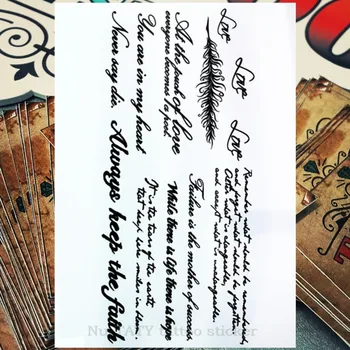 Love
Love
Love
At the touch of love
everyone becomes a poet.
You are in my heart
Never say die.
Remember what should be remembered,
and forget what should be forgotten.
Alter what is changeable,
and accept what is unchangeable.
Failure is the mother of success
While there is life there is love
It is the tears of the earth
that keep her smiles in bloom.
Always keep the faith
tattoo sticker